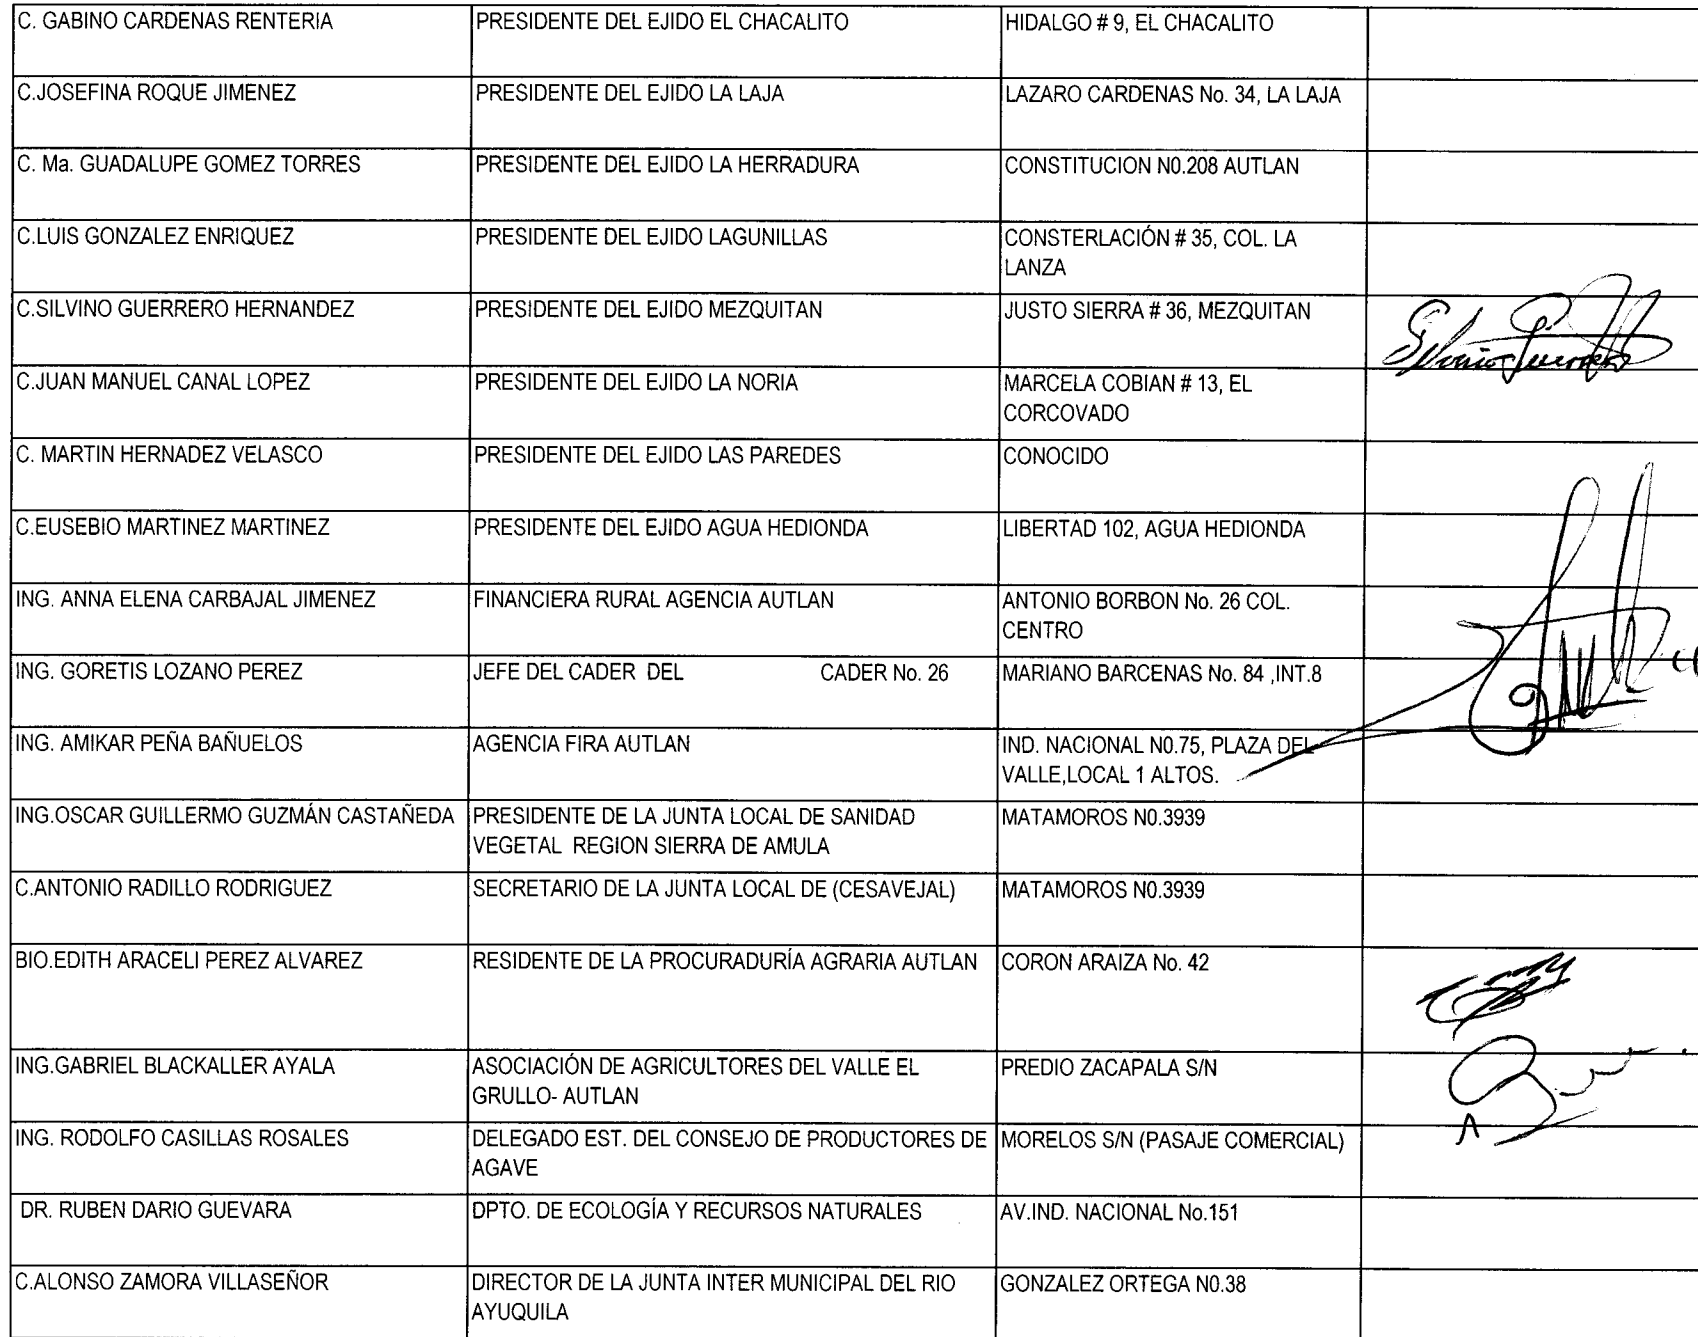 C. GABINO CARDENAS RENTERIA PRESIDENTE DEL EJIDO EL CHACALITO HIDALGO # 9, EL CHACALITO
C.JOSEFINA ROQUE JIMENEZ PRESIDENTE DEL EJIDO LA LAJA LAZARO CARDENAS No. 34, LA LAJA
C. Ma. GUADALUPE GOMEZ TORRES PRESIDENTE DEL EJIDO LA HERRADURA CONSTITUCION N0.208 AUTLAN
C.LUIS GONZALEZ ENRIQUEZ PRESIDENTE DEL EJIDO LAGUNILLAS CONSTERLACIÓN # 35, COL. LA
LANZA
C.SILVINO GUERRERO HERNANDEZ PRESIDENTE DEL EJIDO MEZQUITAN JUSTO SIERRA # 36, MEZQUITAN
C.JUAN MANUEL CANAL LOPEZ PRESIDENTE DEL EJIDO LA NORIA MARCELA COBIAN # 13, EL
CORCOVADO
C. MARTIN HERNADEZ VELASCO PRESIDENTE DEL EJIDO LAS PAREDES CONOCIDO
C.EUSEBIO MARTINEZ MARTINEZ PRESIDENTE DEL EJIDO AGUA HEDIONDA LIBERTAD 102, AGUA HEDIONDA
ING. ANNA ELENA CARBAJAL JIMENEZ FINANCIERA RURAL AGENCIA AUTLAN ANTONIO BORBON No. 26 COL.
CENTRO
ING. GORETIS LOZANO PEREZ JEFE DEL CADER DEL CADER No. 26 MARIANO BARCENAS No. 84 ,INT.8
ING. AMIKAR PEÑA BAÑUELOS AGENCIA FIRA AUTLAN IND. NACIONAL N0.75, PLAZA DEL
VALLE,LOCAL 1 ALTOS.
ING.OSCAR GUILLERMO GUZMÁN CASTAÑEDA PRESIDENTE DE LA JUNTA LOCAL DE SANIDAD MATAMOROS N0.3939
VEGETAL REGION SIERRA DE AMULA
C.ANTONIO RADILLO RODRIGUEZ SECRETARIO DE LA JUNTA LOCAL DE (CESAVEJAL) MATAMOROS N0.3939
BIO.EDITH ARACELI PEREZ ALVAREZ RESIDENTE DE LA PROCURADURÍA AGRARIA AUTLAN CORON ARAIZA No. 42
ING.GABRIEL BLACKALLER AYALA ASOCIACIÓN DE AGRICULTORES DEL VALLE EL PREDIO ZACAPALA S/N
GRULLO- AUTLAN
ING. RODOLFO CASILLAS ROSALES DELEGADO EST. DEL CONSEJO DE PRODUCTORES DE MORELOS S/N (PASAJE COMERCIAL)
AGAVE
DR. RUBEN DARIO GUEVARA DPTO. DE ECOLOGÍA Y RECURSOS NATURALES AV.IND. NACIONAL No.151
C.ALONSO ZAMORA VILLASEÑOR DIRECTOR DE LA JUNTA INTER MUNICIPAL DEL RIO GONZALEZ ORTEGA N0.38
AYUQUILA